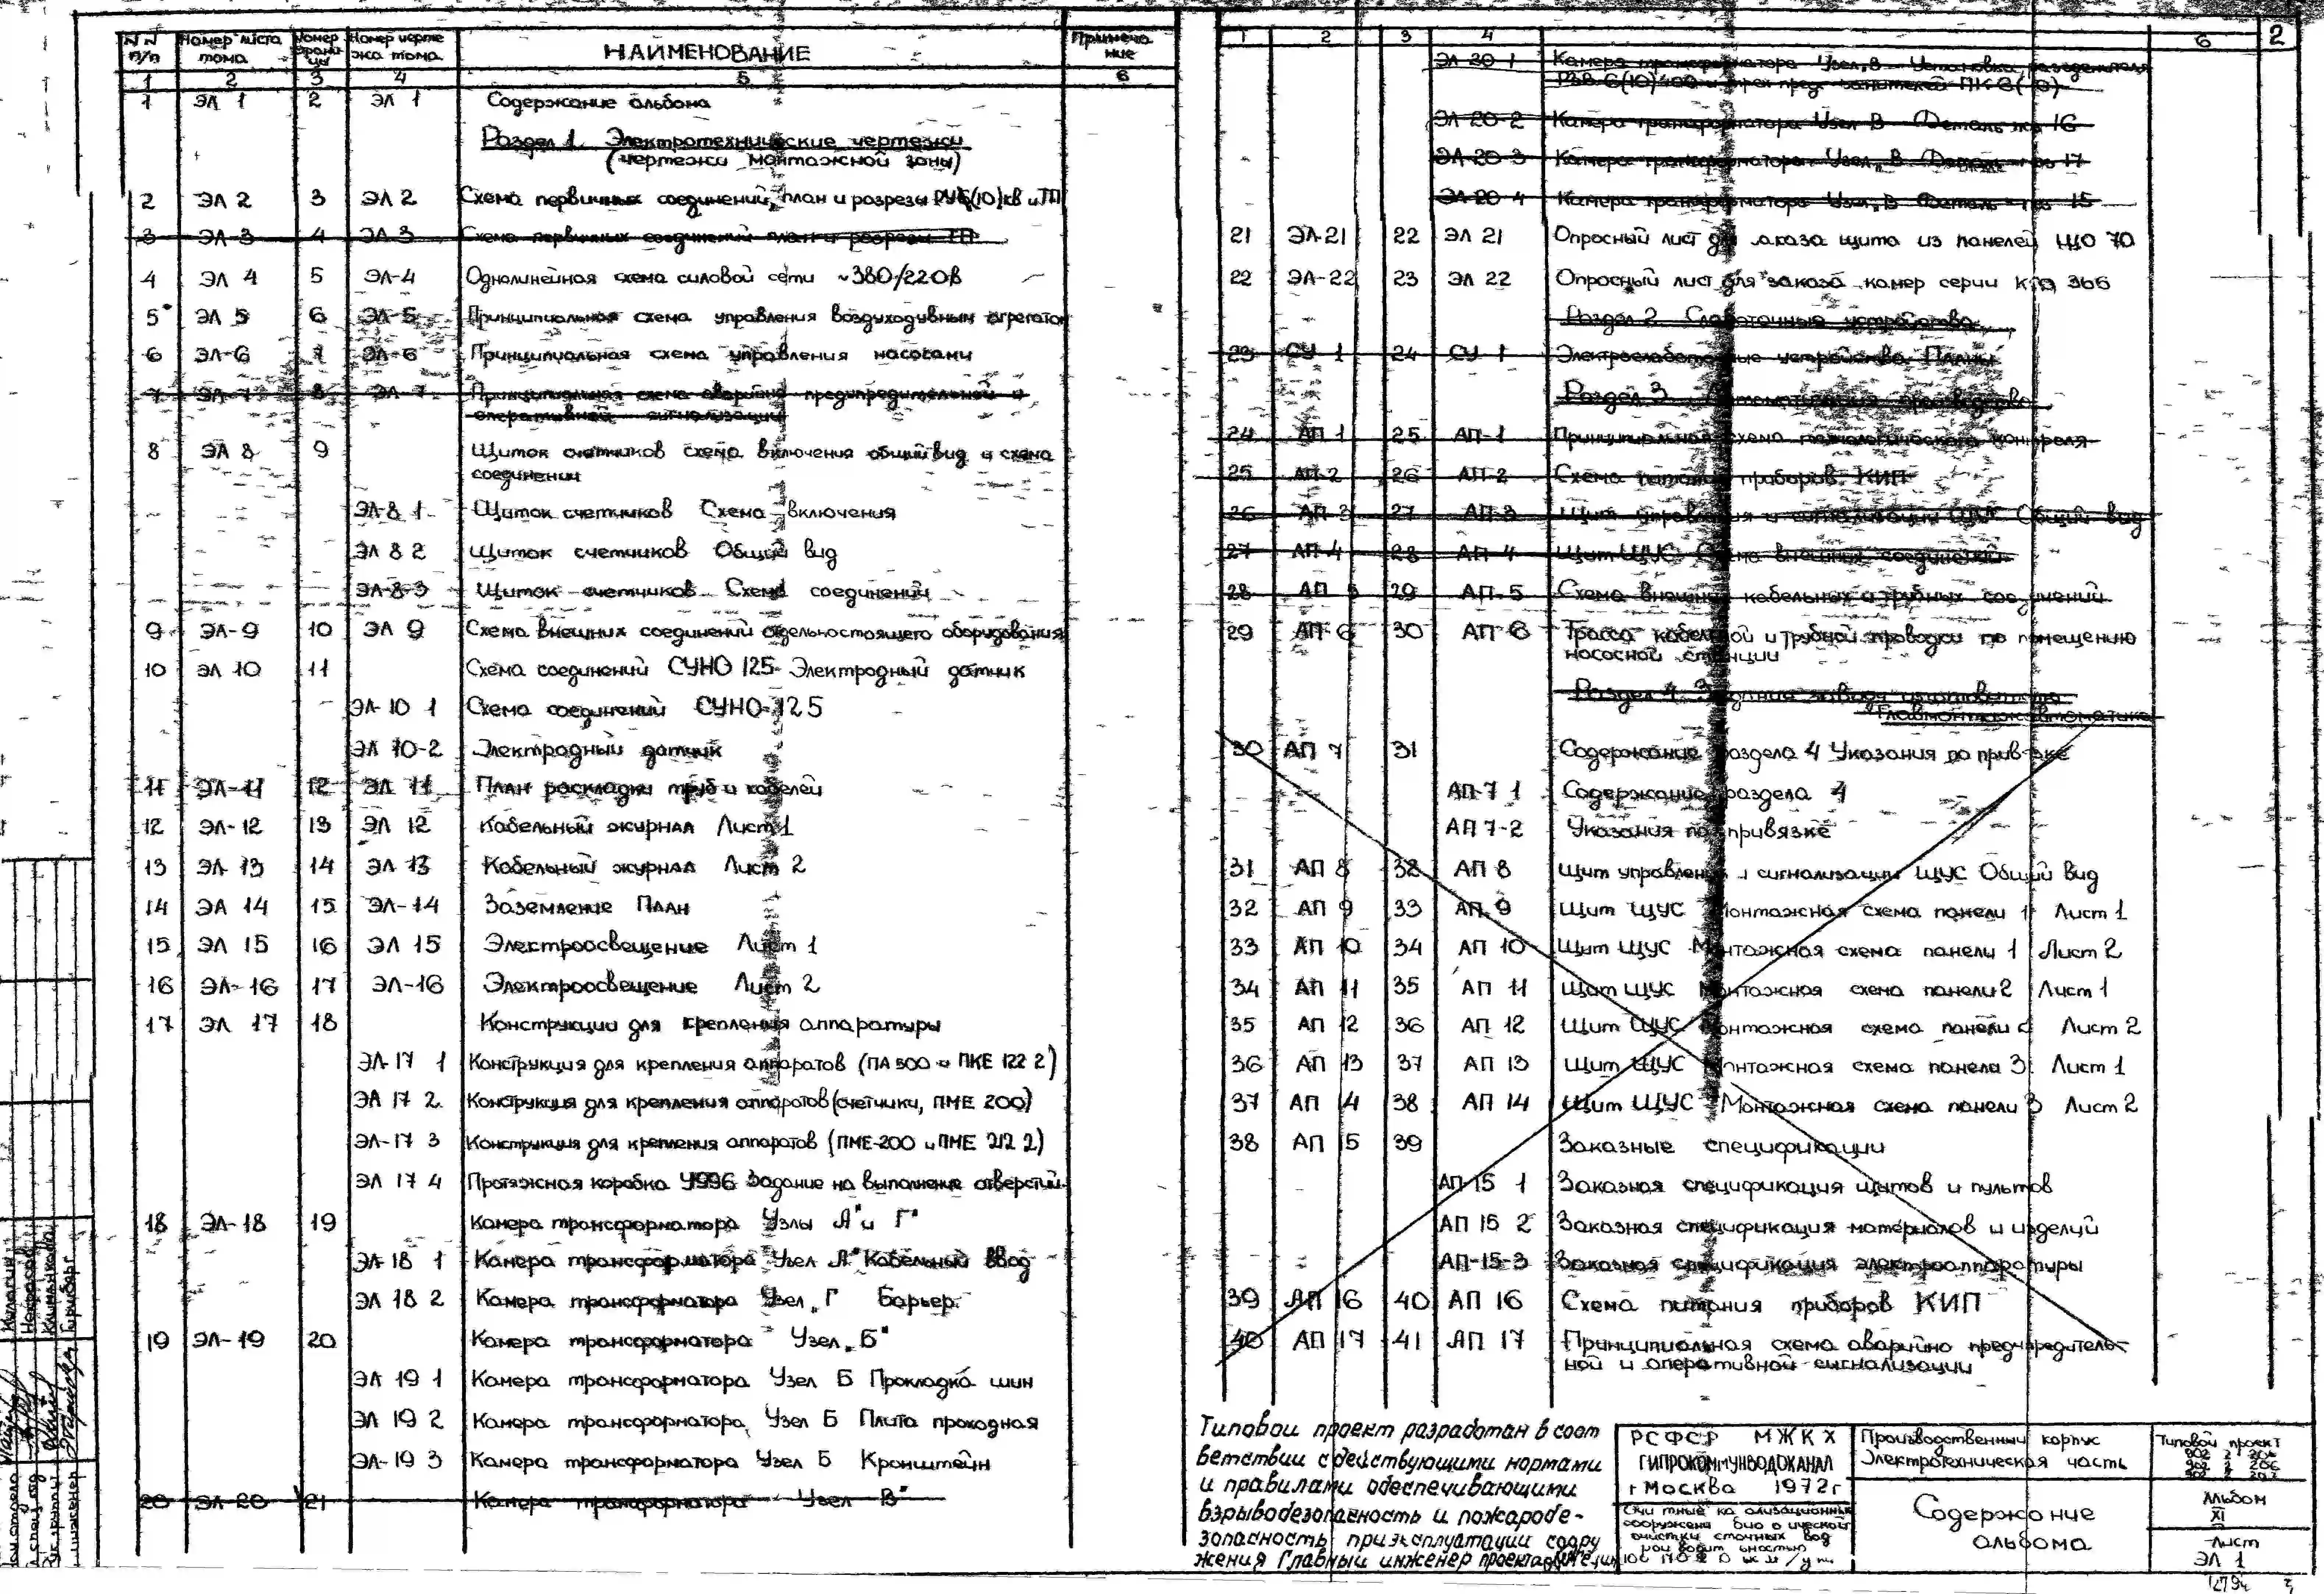 NN п/п Номер листа тома Номер страницы Номер чертежа тома НАИМЕНОВАНИЕ Примечание
1 2 3 4 5 6
1 ЭЛ 1 2 ЭЛ 1 Содержание альбома
Раздел 1. Электротехнические чертежи
(чертежи монтажной зоны)
2 ЭЛ 2 3 ЭЛ 2 Схема первичных соединений, план и разрезы РУ6(10)кв и ТП
3 ЭЛ-3 4 ЭЛ 3 Схема первичных соединений план и разрезы ТП
4 ЭЛ 4 5 ЭЛ-4 Однолинейная схема силовой сети ~380/220в
5 ЭЛ 5 6 ЭЛ-5 Принципиальная схема управления воздуходувным агрегатом
6 ЭЛ-6 7 ЭЛ-6 Принципиальная схема управления насосами
7 ЭЛ-7 8 ЭЛ-7 Принципиальная схема аварийно предупредительной и
оперативной сигнализации
8 ЭЛ 8 9 Щиток счетчиков схема включения общий вид и схема
соединений
ЭЛ-8 1 Щиток счетчиков Схема включения
ЭЛ 8 2 Щиток счетчиков Общий вид
ЭЛ-8-3 Щиток счетчиков Схема соединений
9 ЭЛ-9 10 ЭЛ 9 Схема внешних соединений отдельностоящего оборудования
10 ЭЛ 10 11 Схема соединений СУНО 125 Электродный датчик
ЭЛ-10 1 Схема соединений СУНО-125
ЭЛ 10-2 Электродный датчик
11 ЭЛ-11 12 ЭЛ 11 План раскладки труб и кабелей
12 ЭЛ-12 13 ЭЛ 12 Кабельный журнал Лист 1
13 ЭЛ 13 14 ЭЛ 13 Кабельный журнал Лист 2
14 ЭЛ 14 15 ЭЛ-14 Заземление План
15 ЭЛ 15 16 ЭЛ 15 Электроосвещение Лист 1
16 ЭЛ-16 17 ЭЛ-16 Электроосвещение Лист 2
17 ЭЛ 17 18 Конструкции для крепления аппаратуры
ЭЛ-17 1 Конструкция для крепления аппаратов (ПА 500 и ПКЕ 122 2)
ЭЛ 17 2 Конструкция для крепления аппаратов (счетчики, ПМЕ 200)
ЭЛ-17 3 Конструкция для крепления аппаратов (ПМЕ-200 и ПМЕ 212 2)
ЭЛ 17 4 Протяжная коробка У996 Задание на выполнение отверстий
18 ЭЛ-18 19 Камера трансформатора Узлы А" и Г"
ЭЛ-18 1 Камера трансформатора Узел А" Кабельный ввод
ЭЛ 18 2 Камера трансформатора Узел „Г Барьер
19 ЭЛ-19 20 Камера трансформатора Узел „Б"
ЭЛ 19 1 Камера трансформатора Узел Б Прокладка шин
ЭЛ 19 2 Камера трансформатора Узел Б Плита проходная
ЭЛ-19 3 Камера трансформатора Узел Б Кронштейн
20 ЭЛ 20 21 Камера трансформатора Узел В"
2
1 2 3 4 6
ЭЛ 20 1 Камера трансформатора Узел „В Установка разъединителя
ЭЛ 20-2 Камера трансформатора Узел В Деталь поз 16
ЭЛ-20 3 Камера трансформатора Узел „В Деталь поз 17
ЭЛ-20 4 Камера трансформатора Узел „В Деталь поз 15
21 ЭЛ-21 22 ЭЛ 21 Опросный лист для заказа щита из панелей ЩО 70
22 ЭЛ-22 23 ЭЛ 22 Опросный лист для заказа камер серии КСО 366
Раздел 2 Слаботочные устройства
23 СУ-1 24 СУ-1 Электрослаботочные устройства Планы
Раздел 3 Автоматизация производства
24 АП 1 25 АП-1 Принципиальная схема технологического контроля
25 АП-2 26 АП-2 Схема питания приборов КИП
26 АП 3 27 АП-3 Щит управления и сигнализации ЩУС Общий вид
27 АП-4 28 АП-4 Щит ЩУС Схема внешних соединений
28 АП 5 29 АП-5 Схема внешних кабельных и трубных соединений
29 АП-6 30 АП 6 Трасса кабельной и трубной проводки по помещению
насосной станции
Раздел 4 Задание заводу изготовителю
"Главмонтажавтоматика
30 АП 7 31 Содержание раздела 4 Указания по привязке
АП-7 1 Содержание раздела 4
АП 7-2 Указания по привязке
31 АП 8 32 АП 8 Щит управления и сигнализации ЩУС Общий вид
32 АП 9 33 АП 9 Щит ЩУС Монтажная схема панели 1 Лист 1
33 АП 10 34 АП 10 Щит ЩУС Монтажная схема панели 1 Лист 2
34 АП 11 35 АП 11 Щит ЩУС Монтажная схема панели 2 Лист 1
35 АП 12 36 АП 12 Щит ЩУС Монтажная схема панели 2 Лист 2
36 АП 13 37 АП 13 Щит ЩУС Монтажная схема панели 3 Лист 1
37 АП 14 38 АП 14 Щит ЩУС Монтажная схема панели 3 Лист 2
38 АП 15 39 Заказные спецификации
АП-15 1 Заказная спецификация щитов и пультов
АП 15 2 Заказная спецификация материалов и изделий
АП-15-3 Заказная спецификация электроаппаратуры
39 АП 16 40 АП 16 Схема питания приборов КИП
40 АП 17 41 АП 17 Принципиальная схема аварийно предупредитель-
ной и оперативной сигнализации
Типовой проект разработан в соот
ветствии с действующими нормами
и правилами обеспечивающими
взрывобезопасность и пожаробе-
зопасность при эксплуатации соору
жения Главный инженер проекта
РСФСР МЖКХ
ГИПРОКОММУНВОДОКАНАЛ
г Москва 1972г
Производственный корпус
Электротехническая часть
Содержание
альбома
Типовой проект
Альбом
XI
Лист
ЭЛ 1
Кулагин
Некрасов
Климанкова
Гринберг